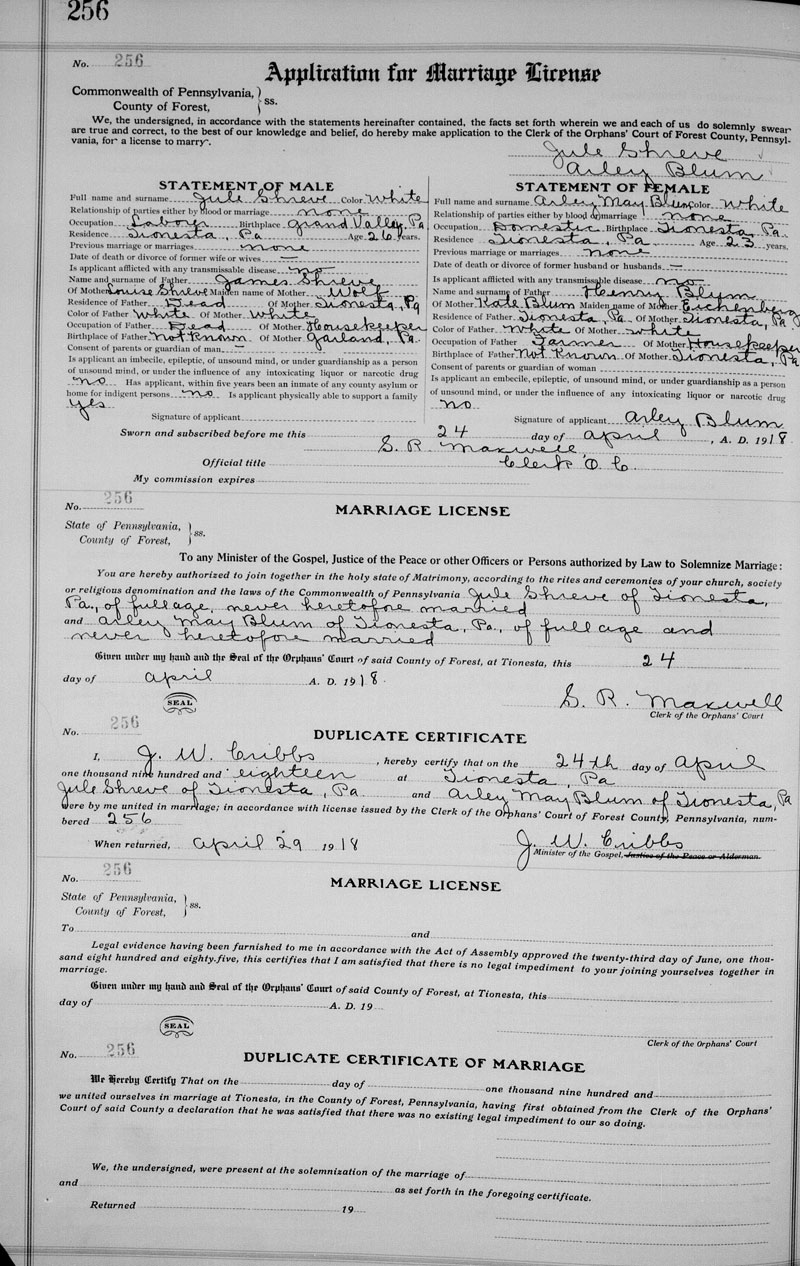 256
No. 256
Application for Marriage License
Commonwealth of Pennsylvania,
County of Forest, } ss.
We, the undersigned, in accordance with the statements hereinafter contained, the facts set forth wherein we and each of us do solemnly swear
are true and correct, to the best of our knowledge and belief, do hereby make application to the Clerk of the Orphans' Court of Forest County, Pennsyl-
vania, for a license to marry.
Jule Shreve
Arley Blum
STATEMENT OF MALE
Full name and surname Jule Shreve Color White
Relationship of parties either by blood or marriage none
Occupation Laborer Birthplace Grand Valley, Pa
Residence Tionesta, Pa Age 26 years.
Previous marriage or marriages none
Date of death or divorce of former wife or wives —
Is applicant afflicted with any transmissable disease no
Name and surname of Father James Shreve
Of Mother Louise Shreve Maiden name of Mother Wolf
Residence of Father Dead Of Mother Tionesta, Pa
Color of Father White Of Mother White
Occupation of Father Dead Of Mother Housekeeper
Birthplace of Father Not Known Of Mother Garland, Pa.
Consent of parents or guardian of man —
Is applicant an imbecile, epileptic, of unsound mind, or under guardianship as a person
of unsound mind, or under the influence of any intoxicating liquor or narcotic drug
no Has applicant, within five years been an inmate of any county asylum or
home for indigent persons no Is applicant physically able to support a family
yes
Signature of applicant
STATEMENT OF FEMALE
Full name and surname Arley May Blum Color White
Relationship of parties either by blood or marriage none
Occupation Domestic Birthplace Tionesta, Pa.
Residence Tionesta, Pa Age 23 years.
Previous marriage or marriages none
Date of death or divorce of former husband or husbands —
Is applicant afflicted with any transmissable disease no
Name and surname of Father Henry Blum
Of Mother Kate Blum Maiden name of Mother Eichenberg
Residence of Father Tionesta, Pa. Of Mother Tionesta, Pa
Color of Father White Of Mother White
Occupation of Father Farmer Of Mother Housekeeper
Birthplace of Father Not Known Of Mother Tionesta, Pa
Consent of parents or guardian of woman
Is applicant an embecile, epileptic, of unsound mind, or under guardianship as a person
of unsound mind, or under the influence of any intoxicating liquor or narcotic drug
no
Signature of applicant Arley Blum
Sworn and subscribed before me this 24 day of April, A. D. 1918
S. R. Maxwell
Official title Clerk O. C.
My commission expires
No. 256
MARRIAGE LICENSE
State of Pennsylvania,
County of Forest, } ss.
To any Minister of the Gospel, Justice of the Peace or other Officers or Persons authorized by Law to Solemnize Marriage:
You are hereby authorized to join together in the holy state of Matrimony, according to the rites and ceremonies of your church, society
or religious denomination and the laws of the Commonwealth of Pennsylvania Jule Shreve of Tionesta,
Pa., of full age, never heretofore married
and Arley May Blum of Tionesta, Pa., of full age and
never heretofore married
Given under my hand and the Seal of the Orphans' Court of said County of Forest, at Tionesta, this 24
day of April A. D. 1918.
SEAL
S. R. Maxwell
Clerk of the Orphans' Court
No. 256
DUPLICATE CERTIFICATE
I, J. W. Cribbs, hereby certify that on the 24th day of April
one thousand nine hundred and eighteen at Tionesta, Pa
Jule Shreve of Tionesta, Pa. and Arley May Blum of Tionesta, Pa
were by me united in marriage; in accordance with license issued by the Clerk of the Orphans' Court of Forest County, Pennsylvania, num-
bered 256
When returned, April 29 1918
J. W. Cribbs
Minister of the Gospel, Justice of the Peace or Alderman.
No. 256
MARRIAGE LICENSE
State of Pennsylvania,
County of Forest, } ss.
To and
Legal evidence having been furnished to me in accordance with the Act of Assembly approved the twenty-third day of June, one thou-
sand eight hundred and eighty-five, this certifies that I am satisfied that there is no legal impediment to your joining yourselves together in
marriage.
Given under my hand and Seal of the Orphans' Court of said County of Forest, at Tionesta, this
day of A. D. 19
SEAL
Clerk of the Orphans' Court
No. 256
DUPLICATE CERTIFICATE OF MARRIAGE
We Hereby Certify That on the day of one thousand nine hundred and
we united ourselves in marriage at Tionesta, in the County of Forest, Pennsylvania, having first obtained from the Clerk of the Orphans'
Court of said County a declaration that he was satisfied that there was no existing legal impediment to our so doing.
We, the undersigned, were present at the solemnization of the marriage of
and as set forth in the foregoing certificate.
Returned 19